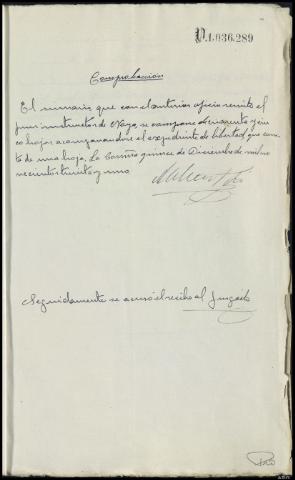 D.1.036.289
Comprobación
El sumario que con el anterior oficio remite el
Juez instructor de Noya, se compone de cuarenta y cin
co hojas acompañandose el expediente de libertad que cons
ta de una hoja. La Coruña quince de Diciembre de mil no
vecientos treinta y uno
Seguidamente se acusó el recibo al Juzgado